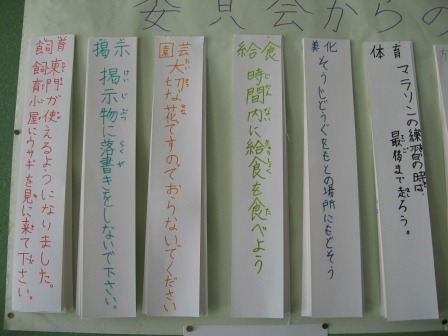 委員会からの
体育
マラソンの練習の時は、
最後まで走ろう。
美化
そうじどうぐをもとの場所にもどそう
給食
時間内に給食を食べよう
園芸
大切な花ですのでおらないでください
掲示
掲示物に落書きをしないで下さい。
飼育
東門が使えるようになりました。
飼育小屋にウサギを見に来て下さい。